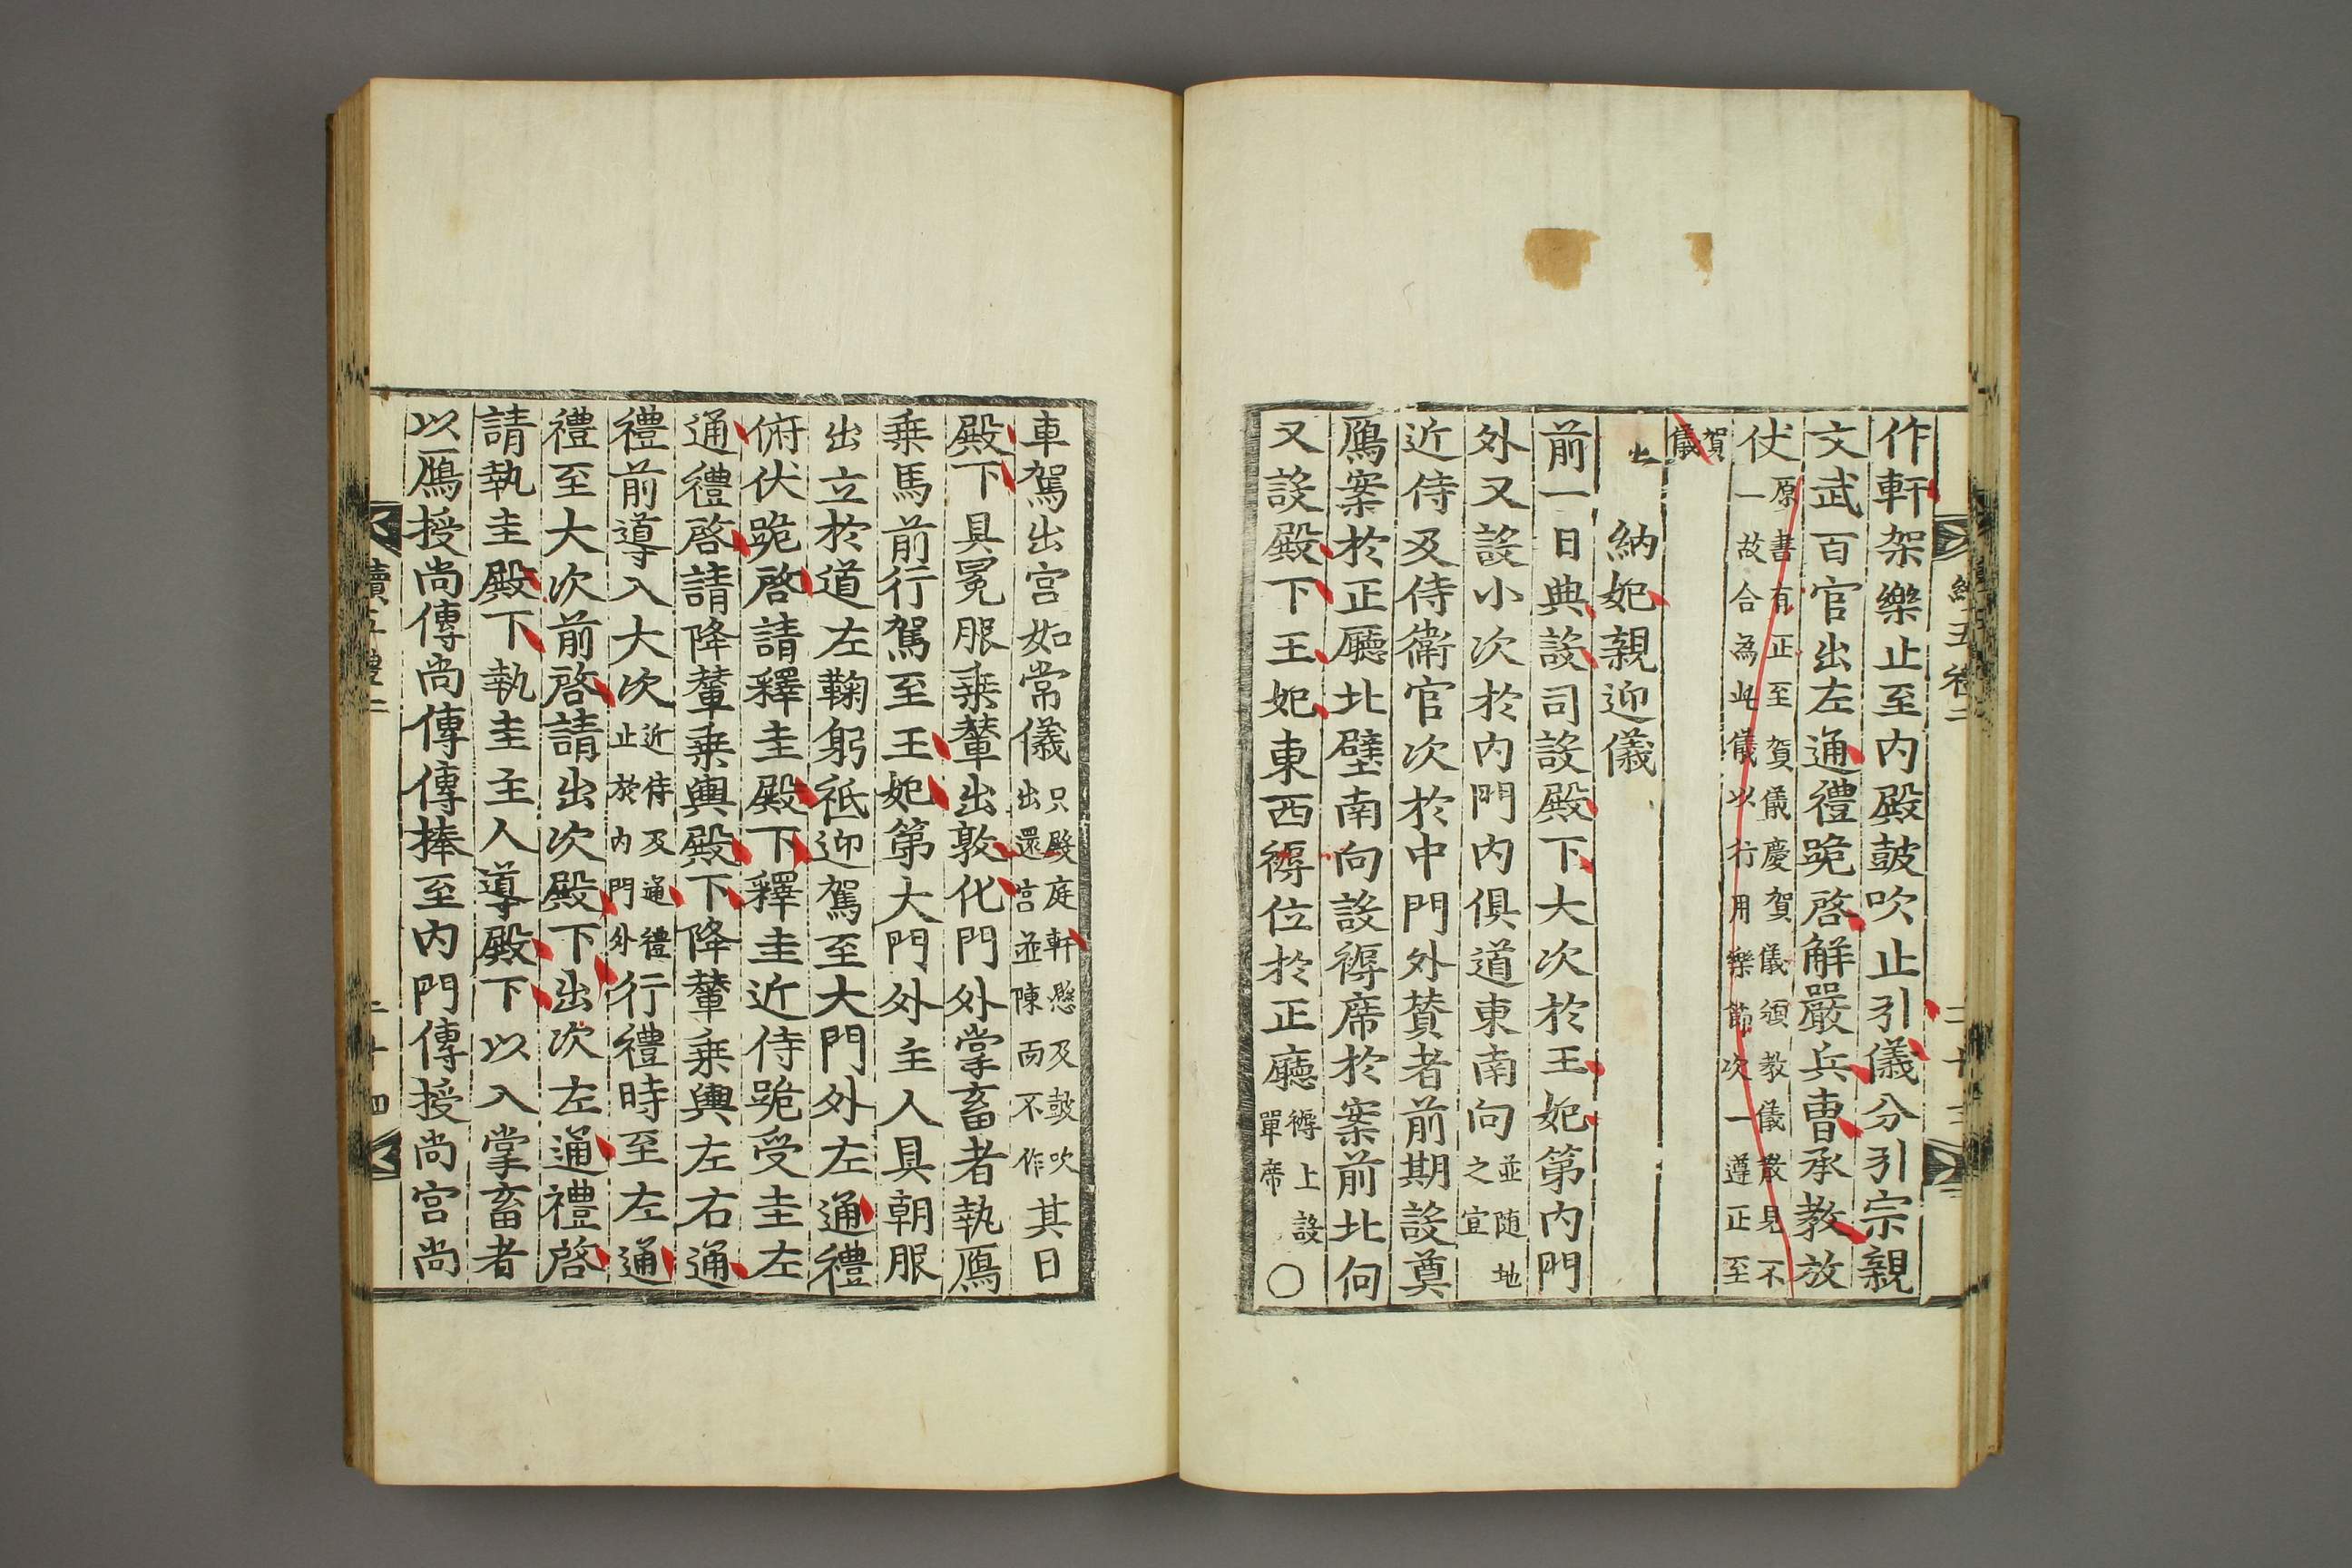 作軒架樂止至內殿鼓吹止引儀分引宗親
文武百官出左通禮跪啓解嚴兵曹承教放
仗原書有正至賀儀慶賀儀頒教儀散見不
一故合為此儀以行用樂節次一遵正至
賀
儀
納妃親迎儀
前一日典設司設殿下大次於王妃第內門
外又設小次於內門內俱道東南向並随地
之宜
近侍及侍衛官次於中門外賛者前期設奠
鴈案於正廳北壁南向設褥席於案前北向
又設殿下王妃東西褥位於正廳褥上設
單席○
車駕出宮如常儀只殿庭軒懸及鼓吹
出還宮並陳而不作其日
殿下具冕服乗輦出敦化門外掌畜者執鴈
乗馬前行駕至王妃第大門外主人具朝服
出立於道左鞠躬祗迎駕至大門外左通禮
俯伏跪啓請釋圭殿下釋圭近侍跪受圭左
通禮啓請降輦乗輿殿下降輦乗輿左右通
禮前導入大次近侍及通禮
止於內門外行禮時至左通
禮至大次前啓請出次殿下出次左通禮啓
請執圭殿下執圭主人導殿下以入掌畜者
以鴈授尚傳尚傳傳捧至內門傳授尚宮尚
續五禮二
二十四